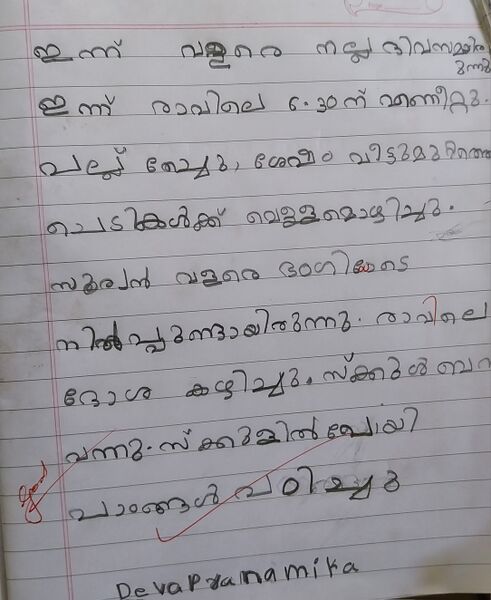 ഇന്ന് വളരെ നല്ല ദിവസമായിരുന്നു
ഇന്ന് രാവിലെ 6.30ന് എണീറ്റു.
പല്ല് തേച്ചു, ശേഷം വീട്ടുമുറ്റത്തെ
ചെടികൾക്ക് വെള്ളമൊഴിച്ചു.
സൂര്യൻ വളരെ ഭംഗിയോടെ
നിൽപ്പുണ്ടായിരുന്നു. രാവിലെ
ദോശ കഴിച്ചു. സ്ക്കൂൾ ബസ
വന്നു. സ്ക്കൂളിൽ പോയി
പാഠങ്ങൾ പഠിച്ചു
Good
DevaPranamika